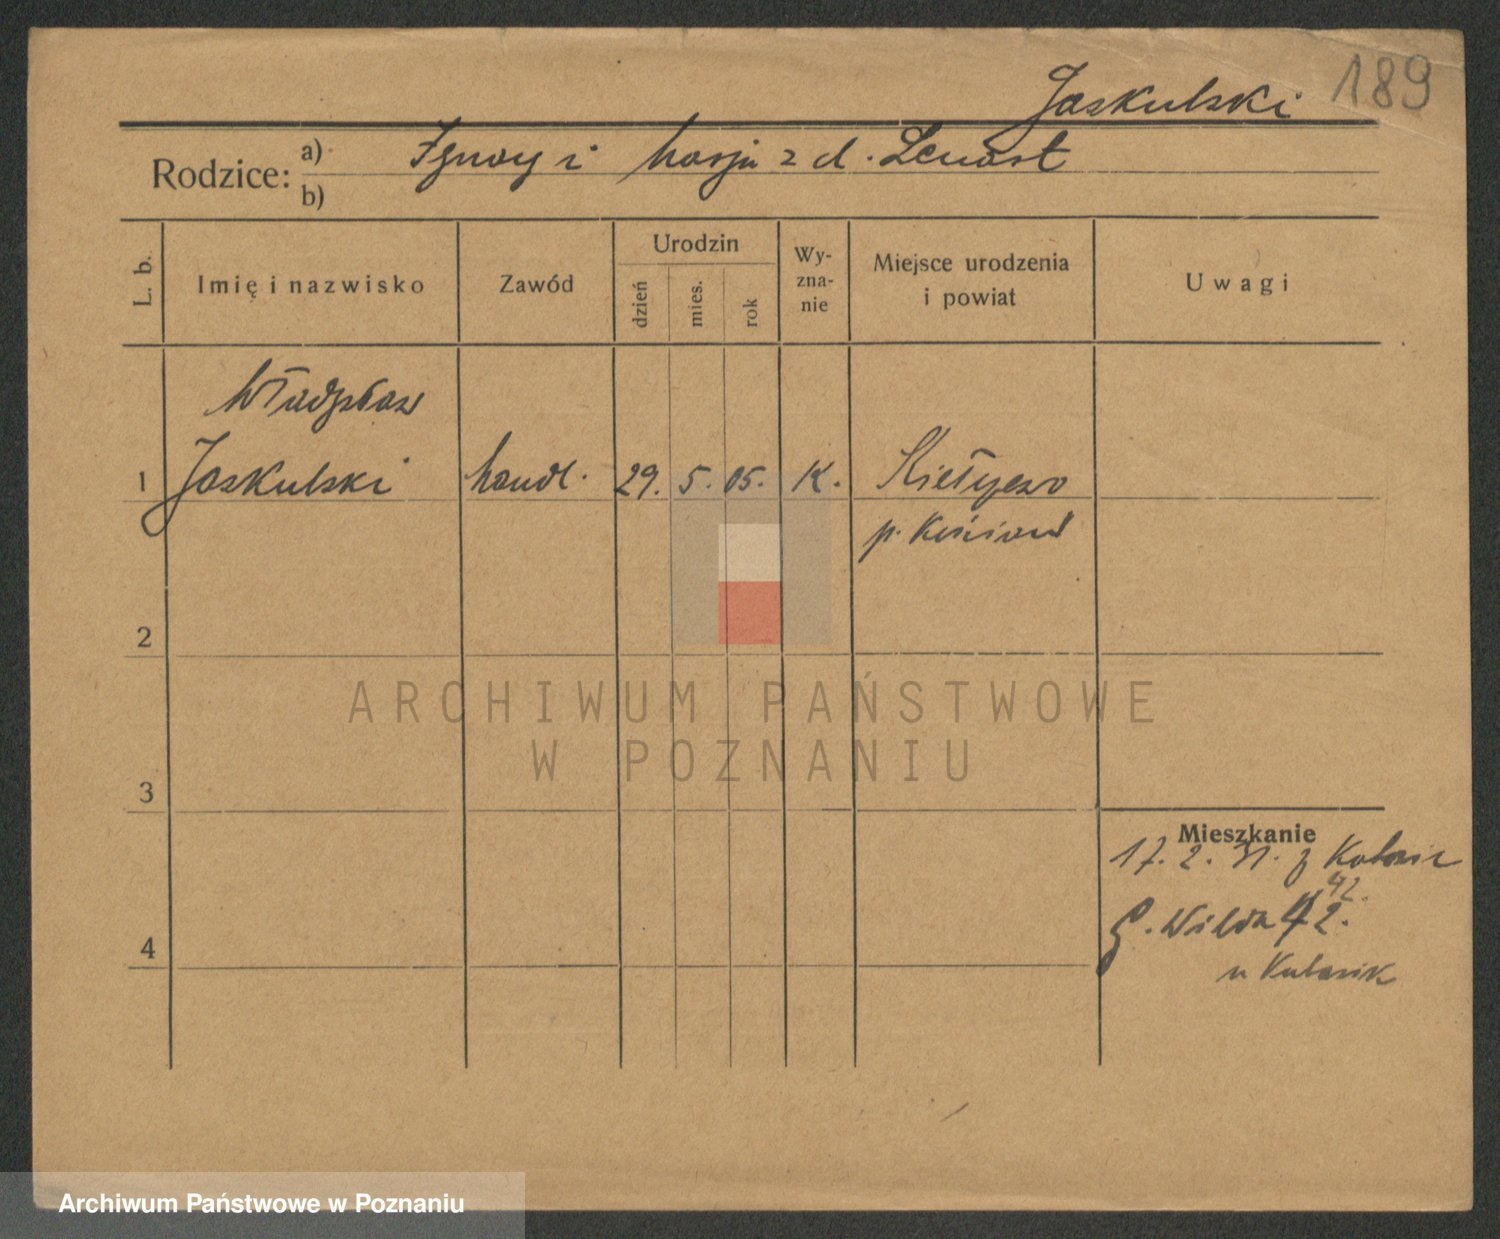 189
Jaskulski
Rodzice: a) Ignacy i Marja z d. Lenart
b)
L. b.
Imię i nazwisko
Zawód
Urodzin
dzień
mies.
rok
Wy-
zna-
nie
Miejsce urodzenia
i powiat
Uwagi
Władysław
1 Jaskulski handl. 29. 5. 05. K. Kiełczewo
p. Kościan
2
3
4
Mieszkanie
17. 2. 31. z
G. Wilda 42.
42.
u Kubasik
ARCHIWUM PAŃSTWOWE
W POZNANIU
Archiwum Państwowe w Poznaniu